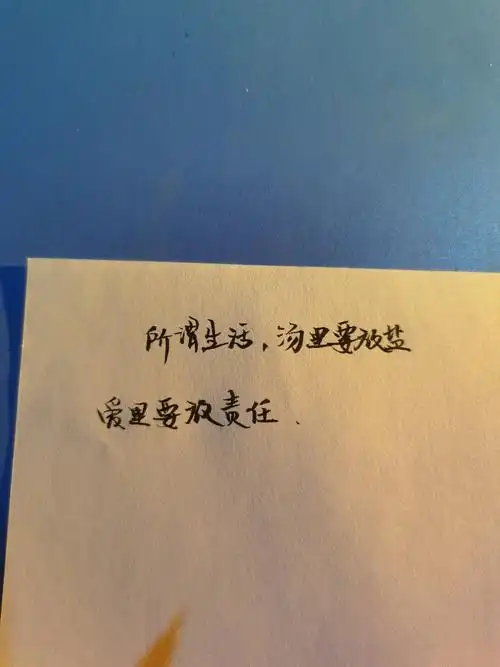 所谓生活，汤里要放盐
爱里要放责任．